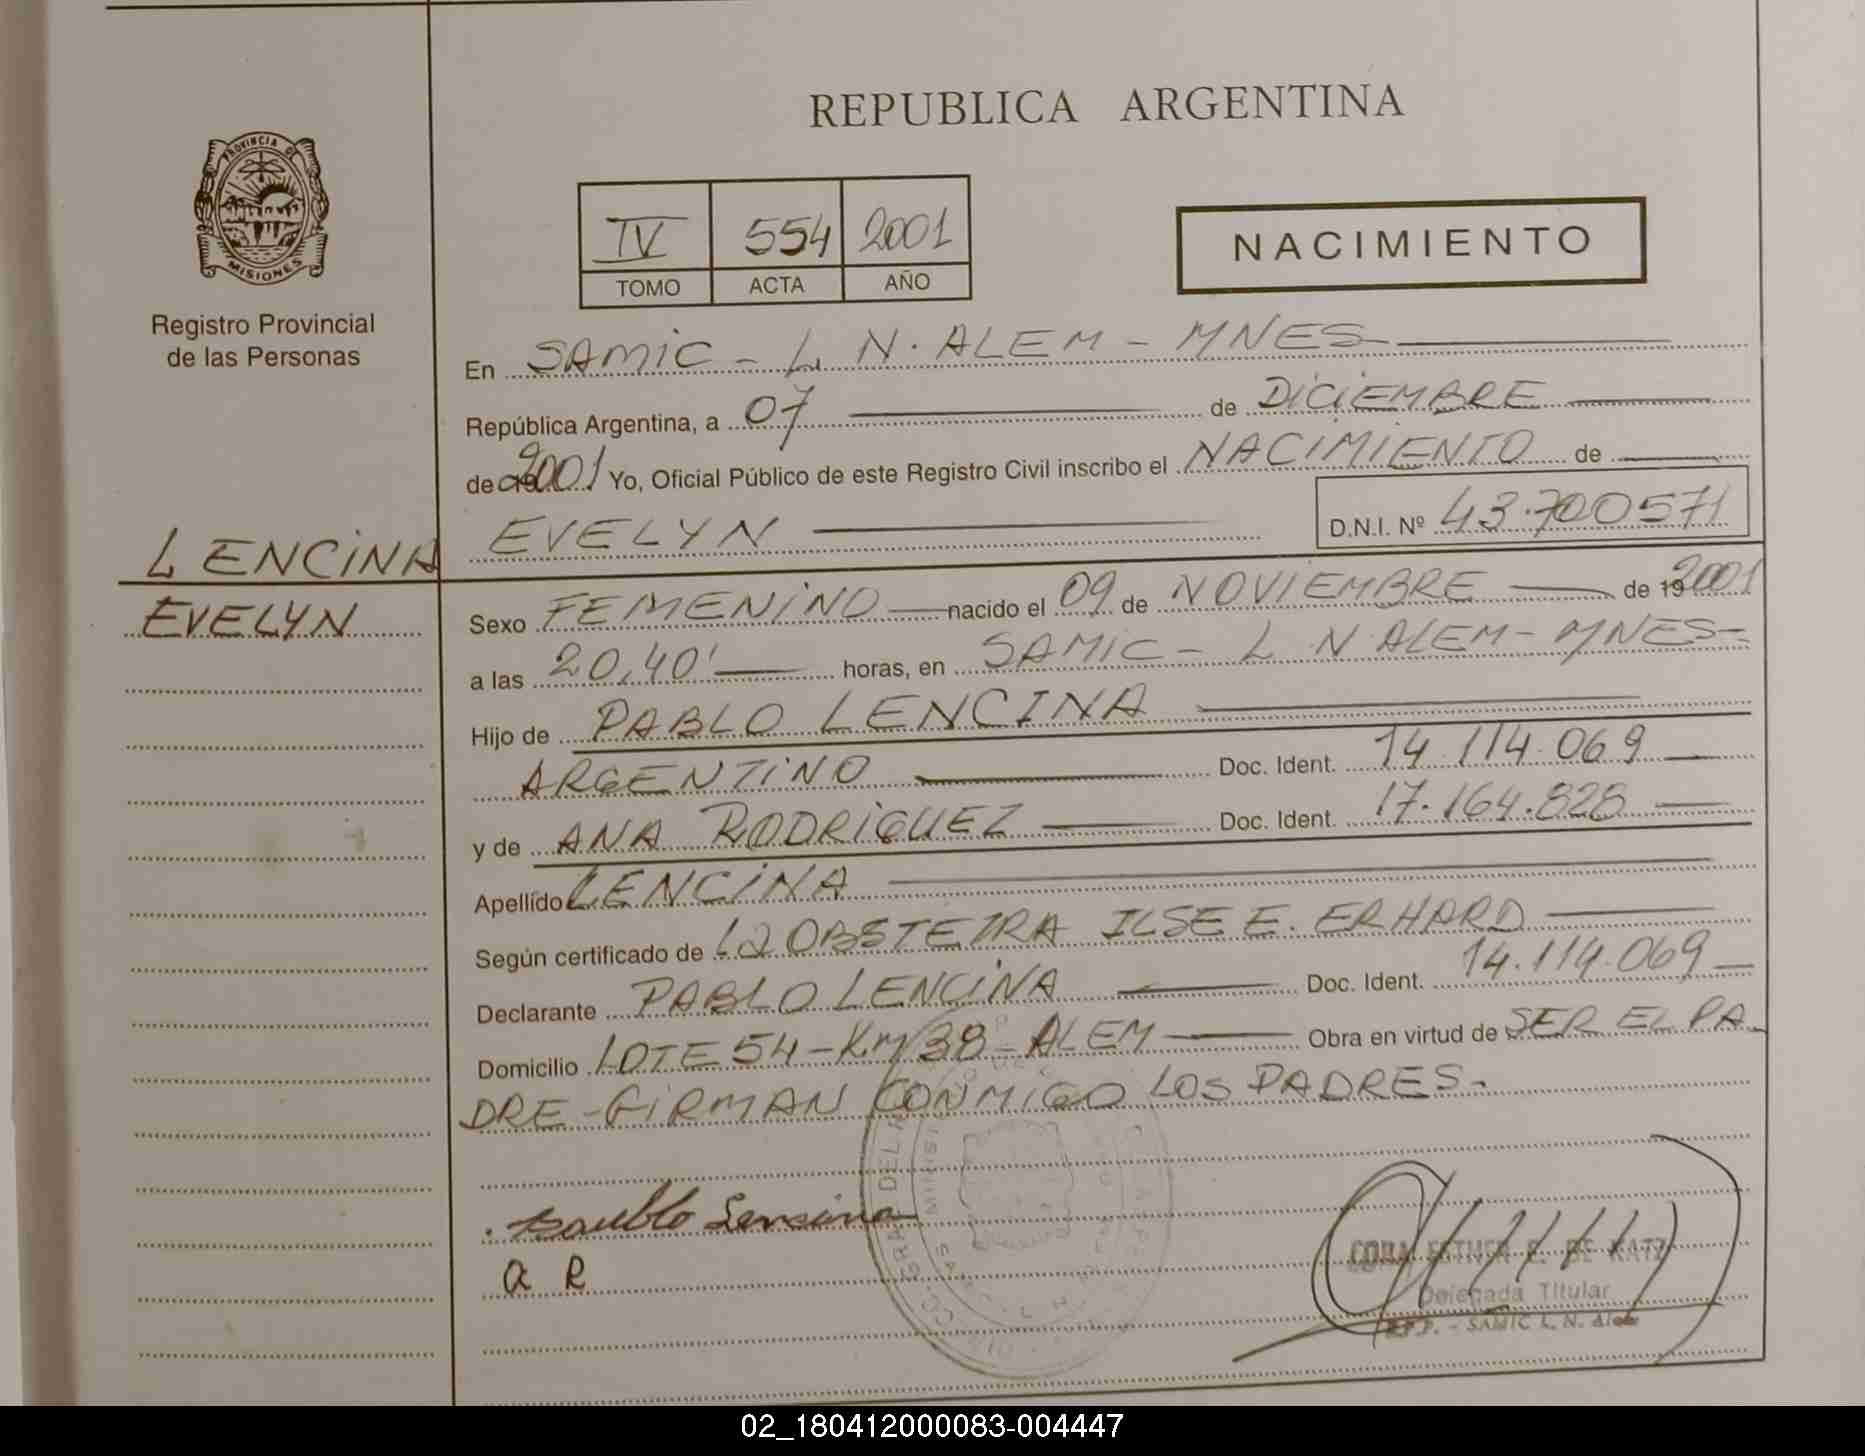 REPUBLICA ARGENTINA
PROVINCIA DE
MISIONES
Registro Provincial
de las Personas
IV 554 2001
TOMO ACTA AÑO
NACIMIENTO
En SAMIC - L N. ALEM - MNES
República Argentina, a 07 de DICIEMBRE
de 2001 Yo, Oficial Público de este Registro Civil inscribo el NACIMIENTO de
EVELYN D.N.I. Nº 43.700571
LENCINA
EVELYN
Sexo FEMENINO nacido el 09 de NOVIEMBRE de 19 2001
a las 20,40' horas, en SAMIC - L N ALEM - MNES -
Hijo de PABLO LENCINA
ARGENTINO Doc. Ident. 14.114.069
y de ANA RODRIGUEZ Doc. Ident. 17.164.828
Apellido LENCINA
Según certificado de LA OBSTETRA ILSE E. ERHARD
Declarante PABLO LENCINA Doc. Ident. 14.114.069
Domicilio LOTE 54 - KM 38 - ALEM Obra en virtud de SER EL PA
DRE - FIRMAN CONMIGO LOS PADRES.
Lencina
a R
CORA ESTHER E. DE KATZ
Delegada Titular
R.P.P. - SAMIC L. N. Alem
02_180412000083-004447